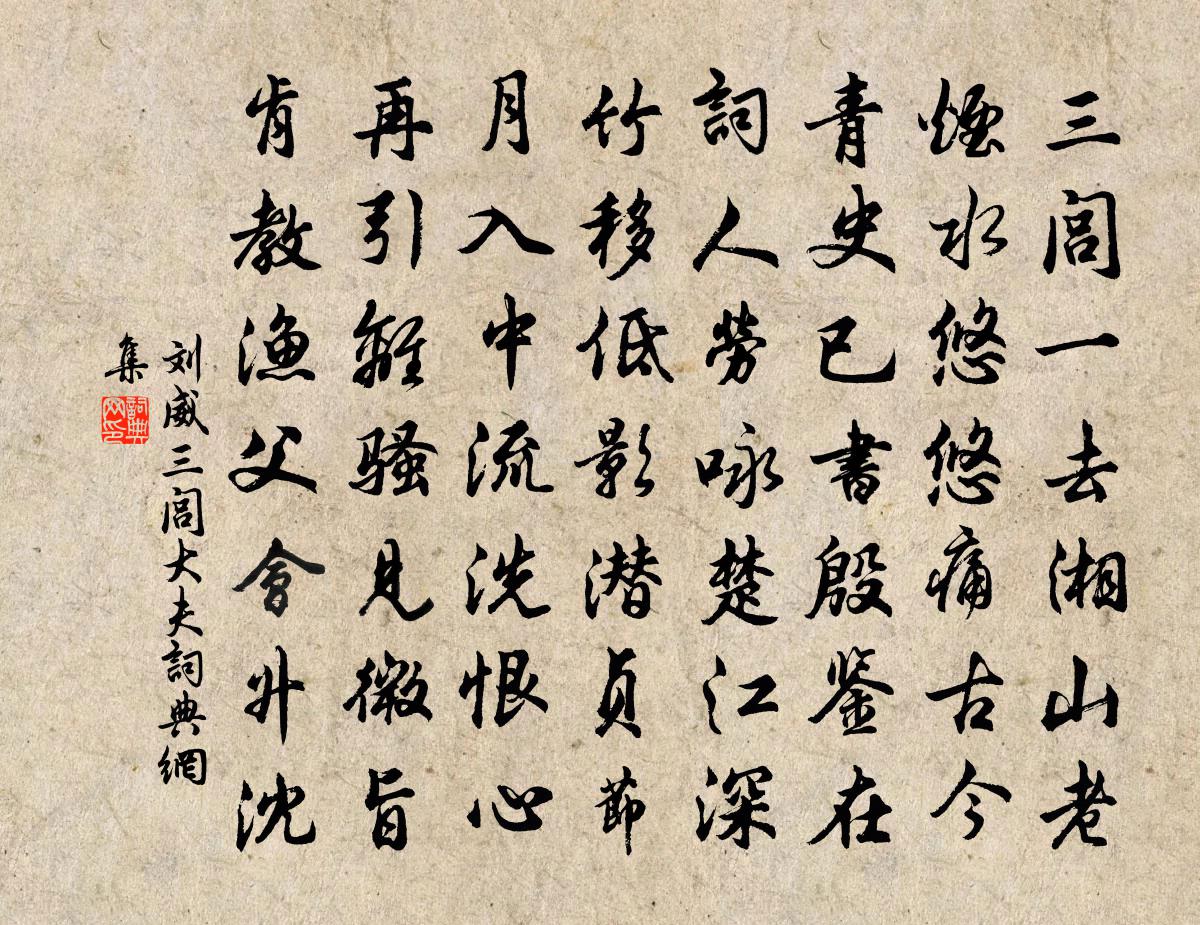 三閭一去湘山老
煙水悠悠痛古今
青史已書殷鉴在
詞人勞咏楚江深
竹移低影潜貞節
月入中流洗恨心
再引離騷見微旨
肯教漁父會升沈
刘威三閭大夫詞典網
集
詞典
网印